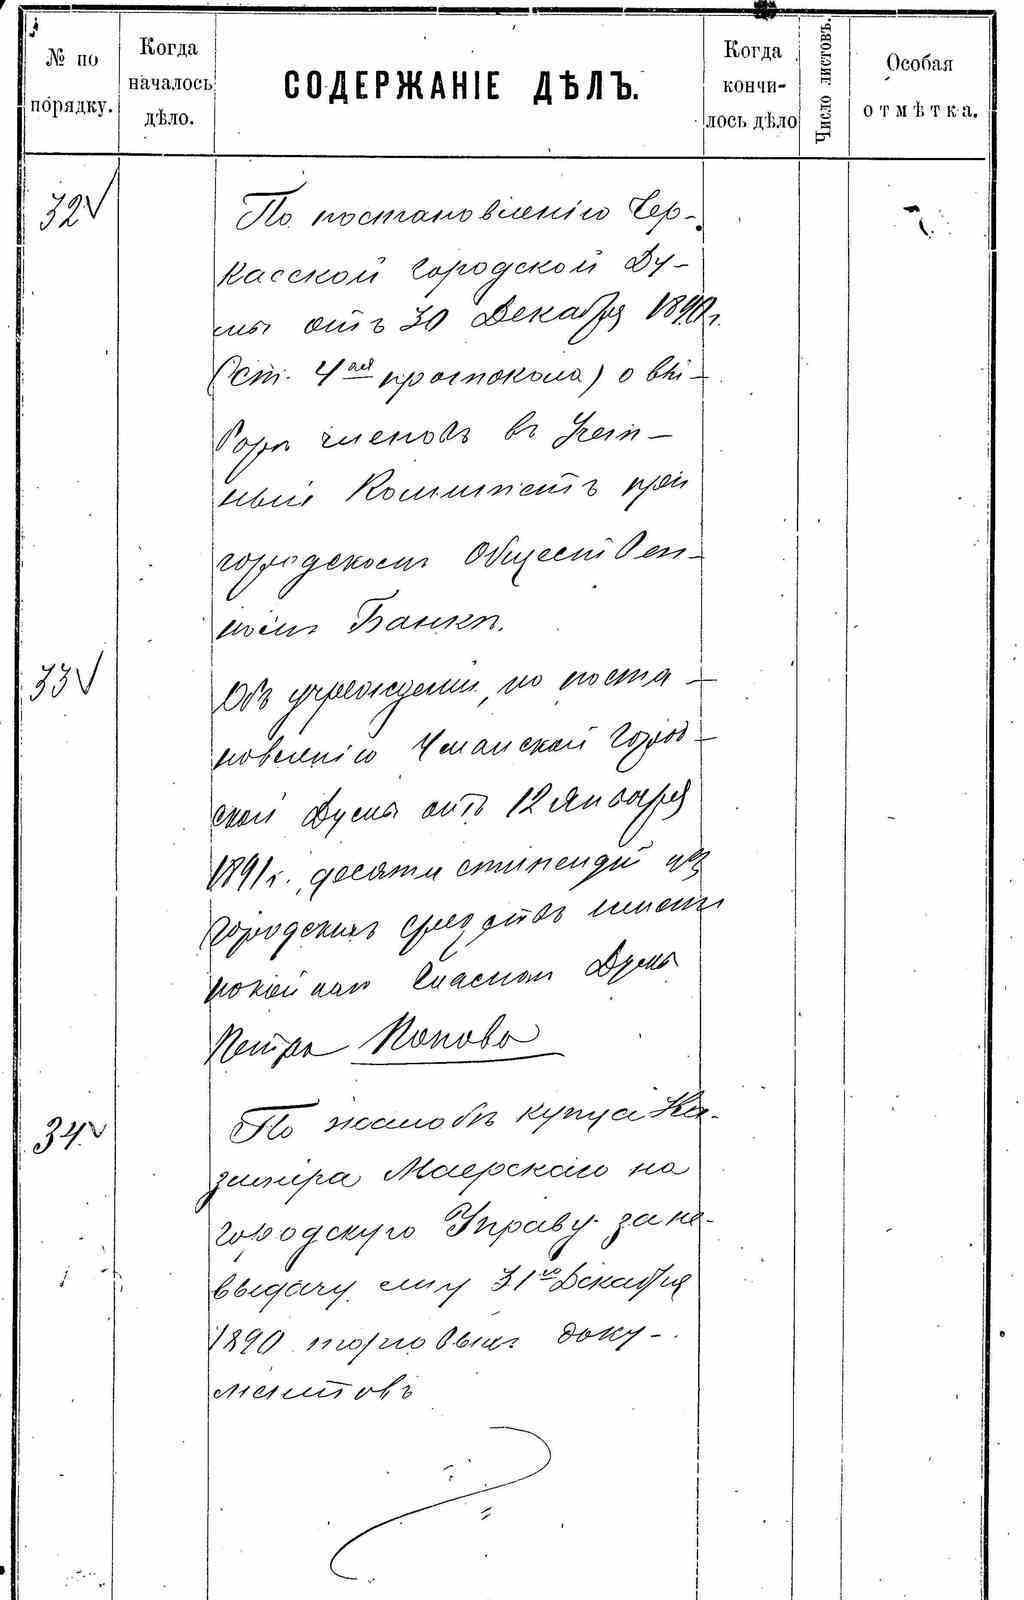 № по порядку.
Когда началось дѣло.
СОДЕРЖАНІЕ ДѢЛЪ.
Когда кончи-лось дѣло
Число листовъ.
Особая отмѣтка.
32
По постановленію Чер-
касской городской Ду-
мы отъ 30 Декабря 1890 г.
(ст. 4ая протокола) о вы-
борѣ членовъ въ Учет-
ный Комитетъ при
городскомъ Обществен-
номъ Банкѣ.
33
Объ учрежденіи, по поста-
новленію Уманской город-
ской Думы отъ 12 Января
1891 г., десяти стипендій из
городскихъ средствъ имени
Думы
Петра Попова
34
По жалобѣ купца Ка-
зимира Маерскаго на
городскую Управу за не-
выдачу ему 31го Декабря
1890 торговыхъ доку-
ментовъ